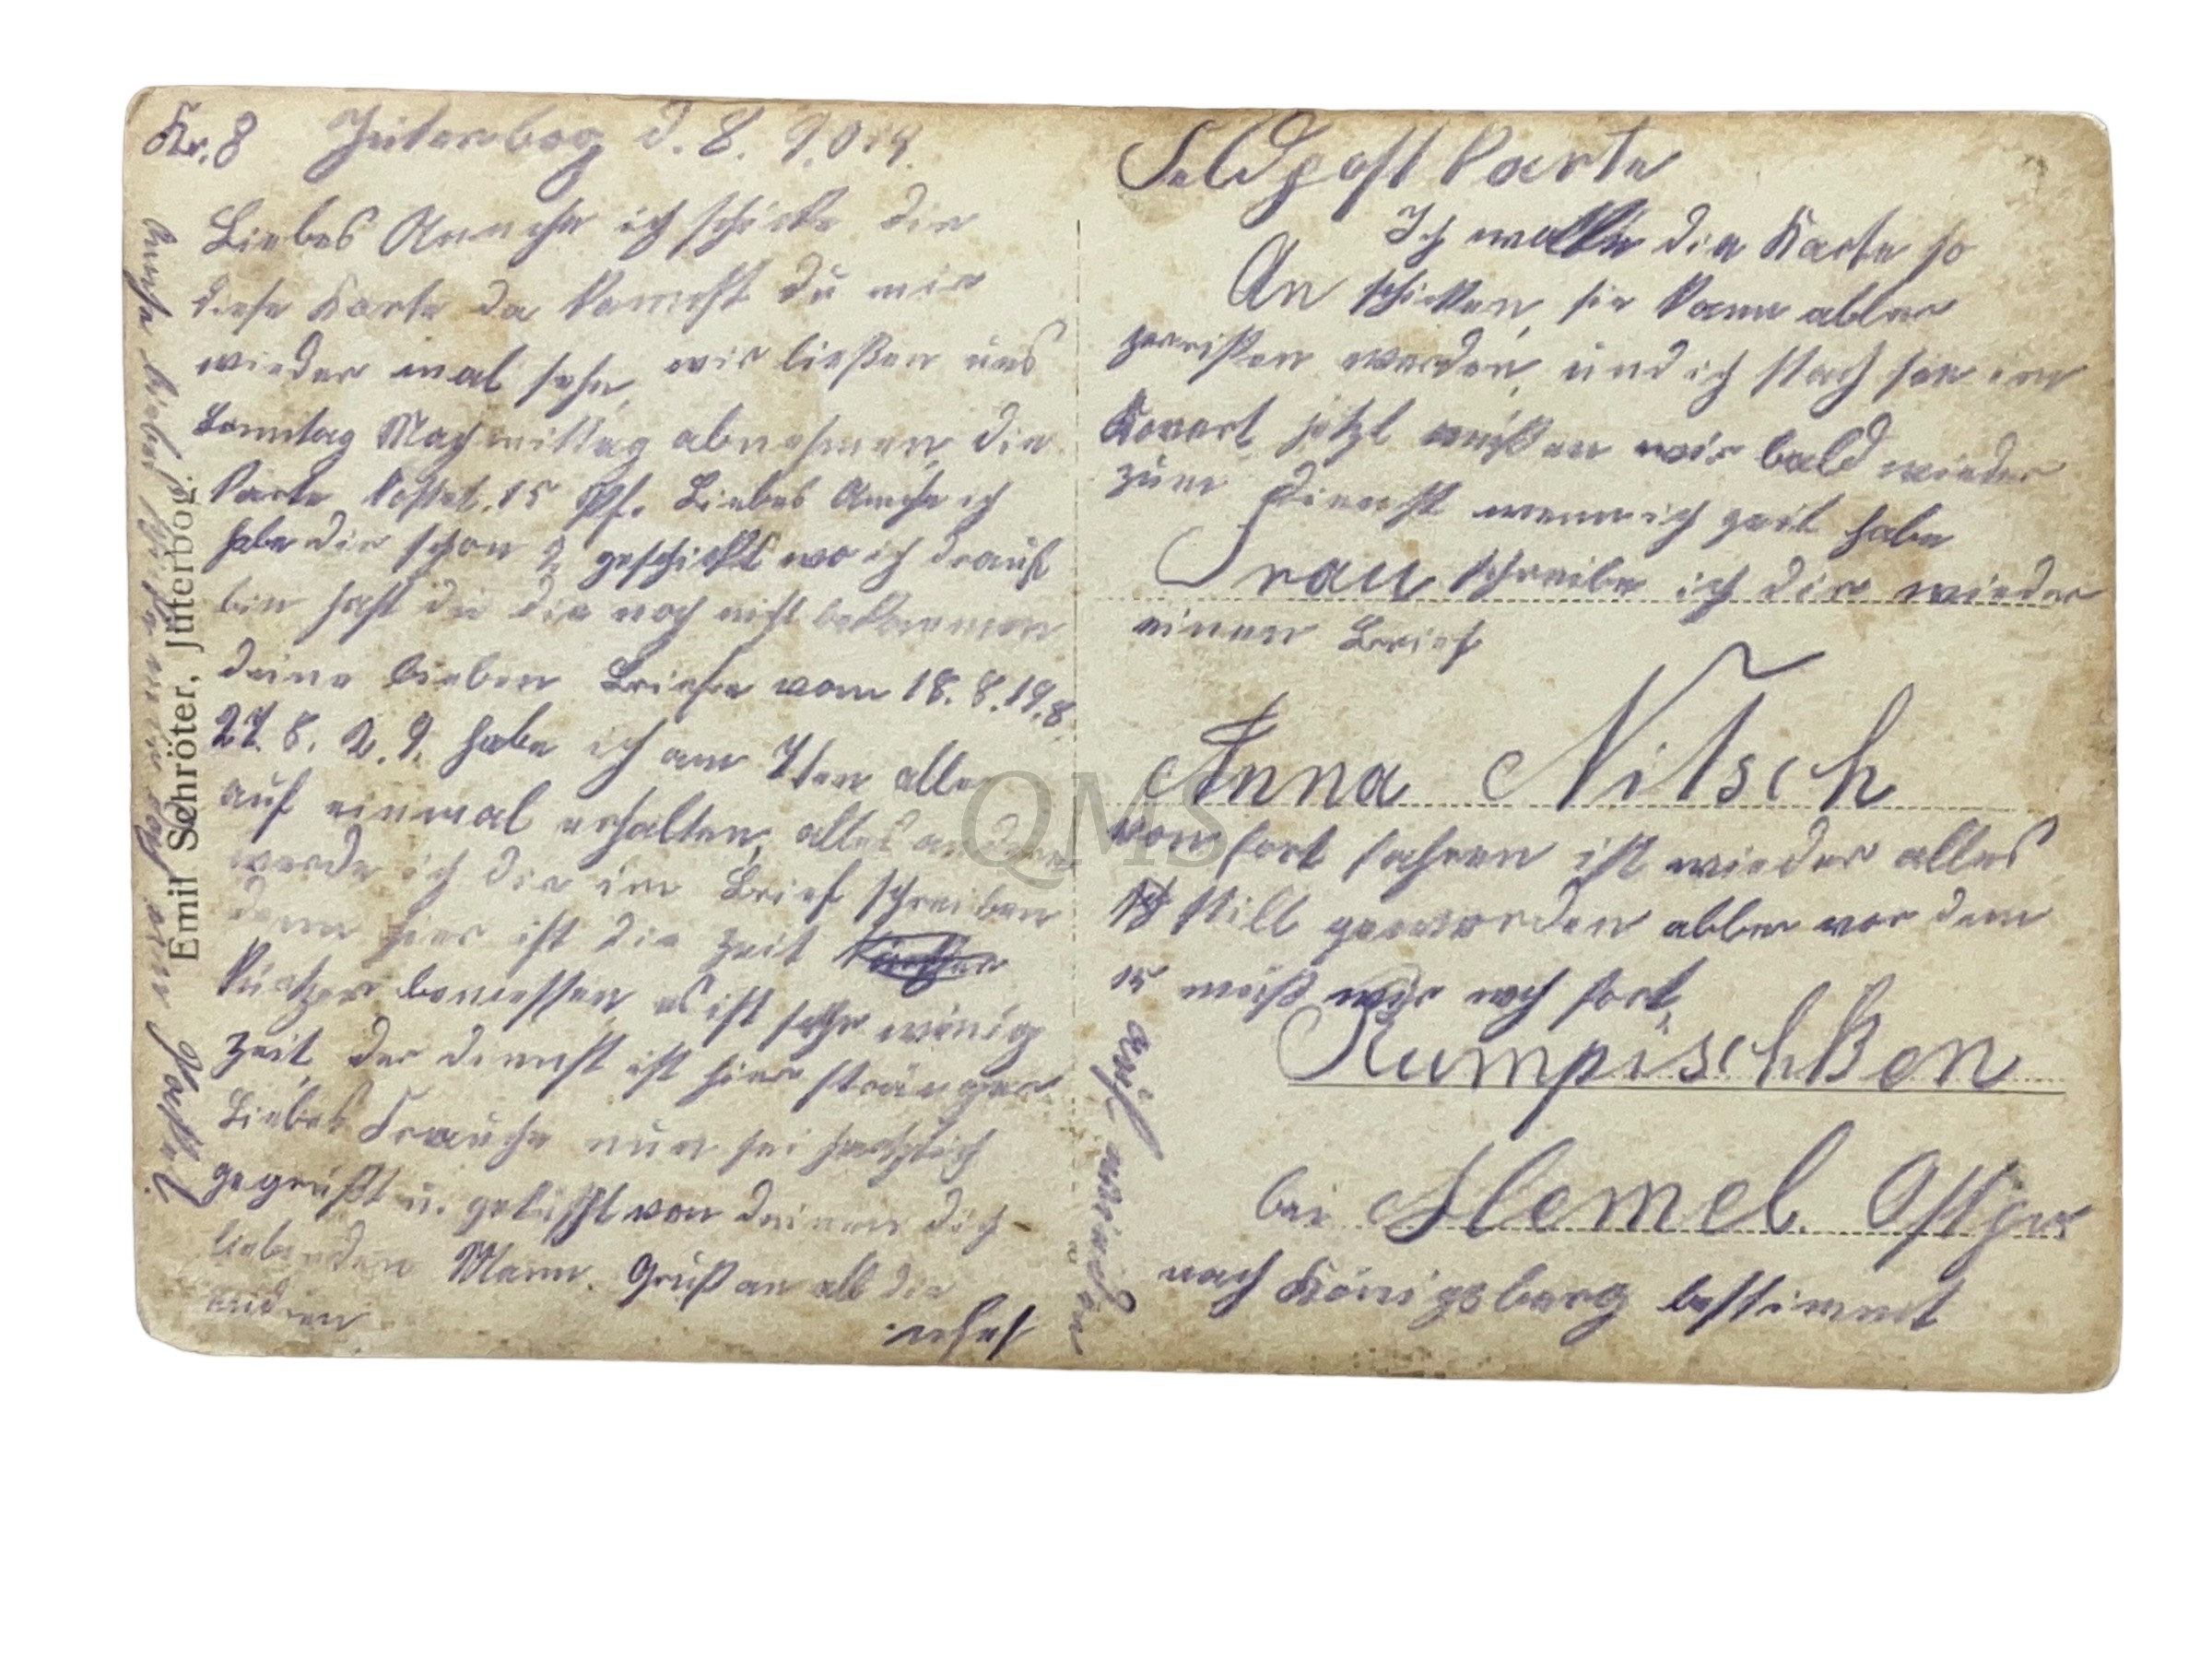 Nr. 8 Jüterbog d. 8. 9. 019.
Liebes Annche ich schicke dir
diese Karte da kannst du mir
wieder mal sehn, wir ließen uns
Sonntag Nachmittag abnehmen, die
Karte kostet 15 Pf. Liebes Annche ich
habe dir schon 2 geschickt wo ich drauf
bin hast du die noch nicht bekommen
deine lieben Briefe vom 18. 8. 19. 8
27. 8. 2. 9. habe ich am 7ten alle
auf einmal erhalten, alles andere
werde ich dir im Brief schreiben
denn hier ist die zeit
kurtzer bemessen es ist sehr wenig
zeit, der dienst ist hier stränger
Liebes Frauche nun sei herzlich
gegrüßt u. geküsst von deinen dich
liebenden Mann. Gruß an all die
andren
Emil Schröter, Jüterbog.
Feldpost Karte
Ich wollte die Karte so
An schicken, sie kann abber
zerrißen werden, und ich stach sie im
Kovert jetzt müßen wir bald wieder
zum dienst wenn ich zeit habe
Frau schreibe ich dir wieder
einen Brief
Anna Nitsch
vom fort fahren ist wieder alles
still geworden abber vor dem
15 muß wir noch fort,
Rumpischken
bei Memel. Ostpr.
nach Königsberg bestimmt
QMS